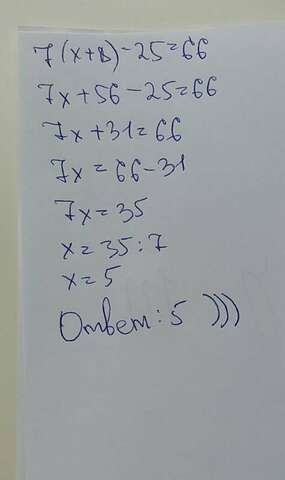 7(x+8)-25=66
7x+56-25=66
7x+31=66
7x=66-31
7x=35
x=35:7
x=5
Ответ: 5 )))